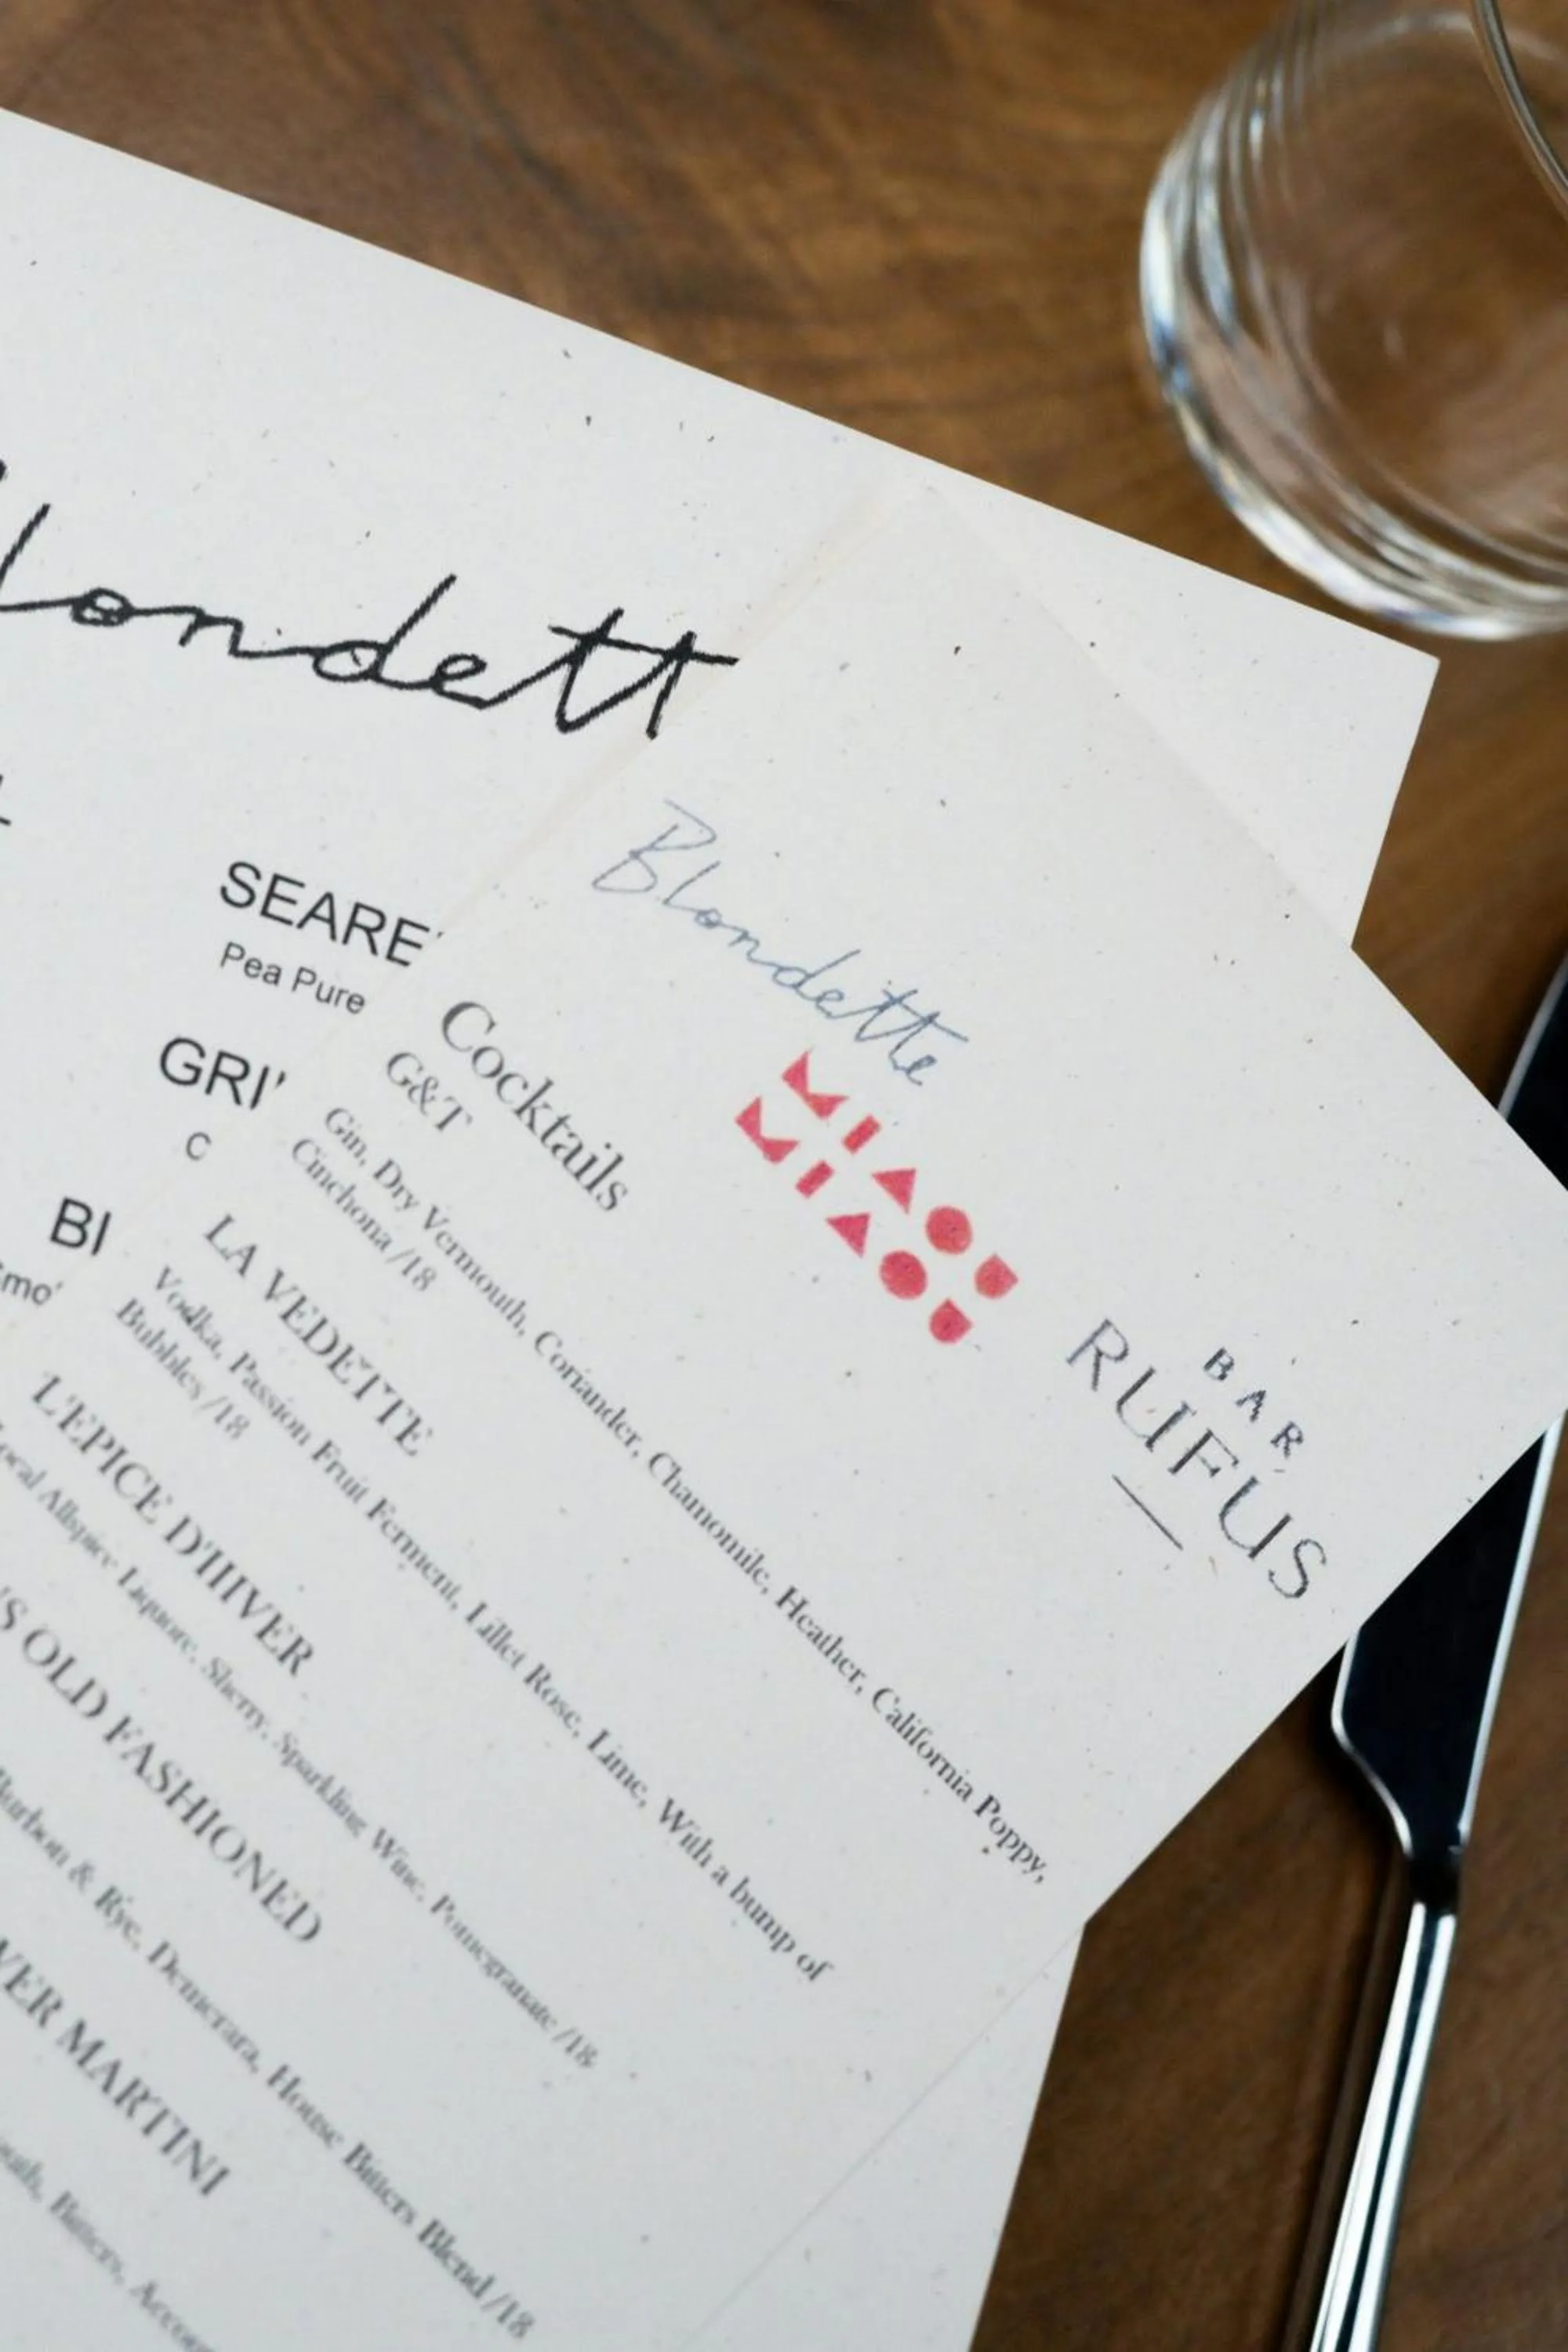 londett
SEARE
Pea Pure
GRI
C
BI
Blondette
MIAOU
MIAOU
BAR
RUFUS
Cocktails
G&T
Gin, Dry Vermouth, Coriander, Chamomile, Heather, California Poppy,
Cinchona /18
LA VEDETTE
Vodka, Passion Fruit Ferment, Lillet Rose, Lime, With a bump of
Bubbles /18
L'EPICE D'HIVER
Local Allspice Liquore, Sherry, Sparkling Wine, Pomegranate /18
'S OLD FASHIONED
Burbon & Rye, Demerara, House Bitters Blend /18
VER MARTINI
outh, Bitters,